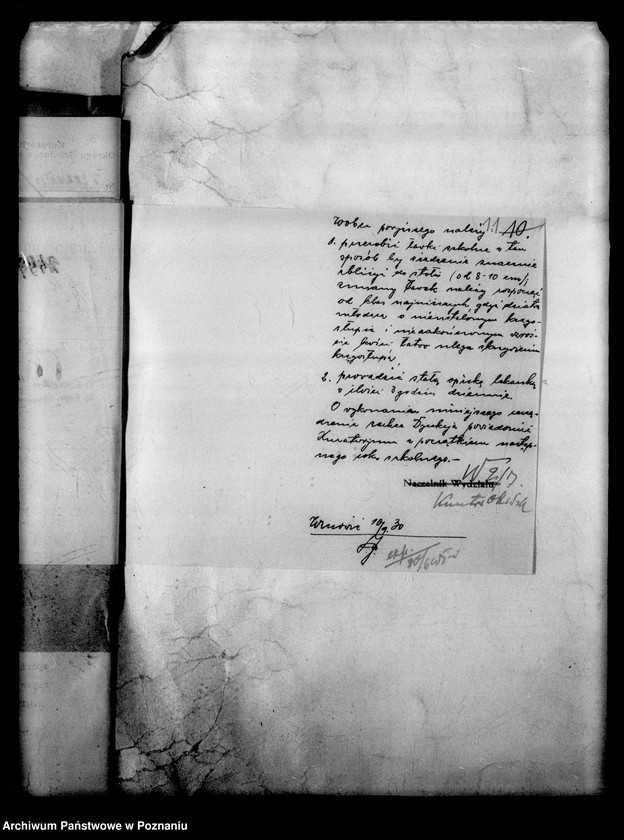 Wobec powyższego należy:
1. przerobić ławki szkolne w ten
sposób by siedzenie znacznie
zbliżyć do stołu (od 8-10 cm);
zmiany ławek należy rozpocząć
od klas najniższych, gdyż dziatwa
młodsza o nieustalonym kręgo-
słupie i niezakończonym wzroś-
cie kości łatwo ulega skrzywieniu
kręgosłupa,
2. prowadzić stałą opiekę lekarską
w ilości 3 godzin dziennie.
O wykonaniu niniejszego zarzą-
dzenia zechce Dyrekcja powiadomić
Kuratorjum z początkiem następ-
nego roku szkolnego.-
Naczelnik Wydziału
Wznowić 10/9. 30
Archiwum Państwowe w Poznaniu